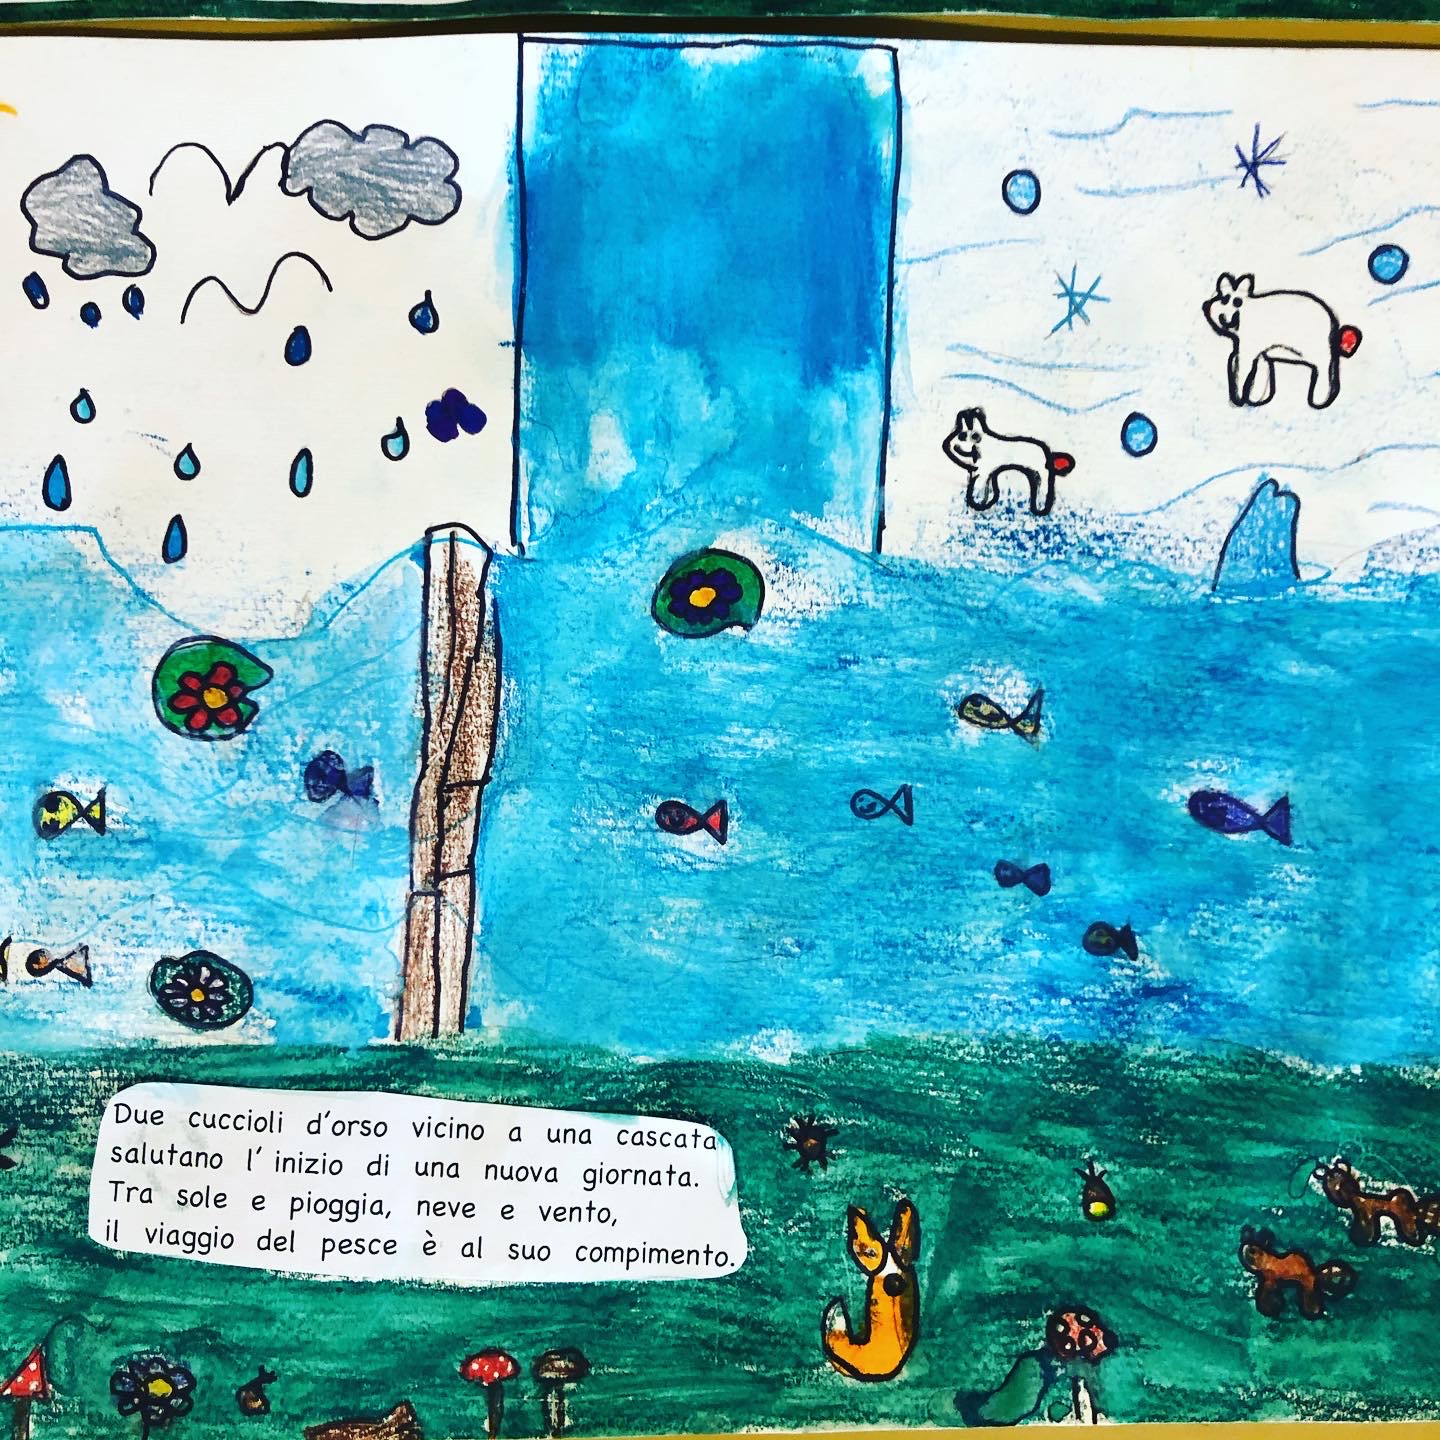 Due cuccioli d'orso vicino a una cascata
salutano l' inizio di una nuova giornata.
Tra sole e pioggia, neve e vento,
il viaggio del pesce è al suo compimento.